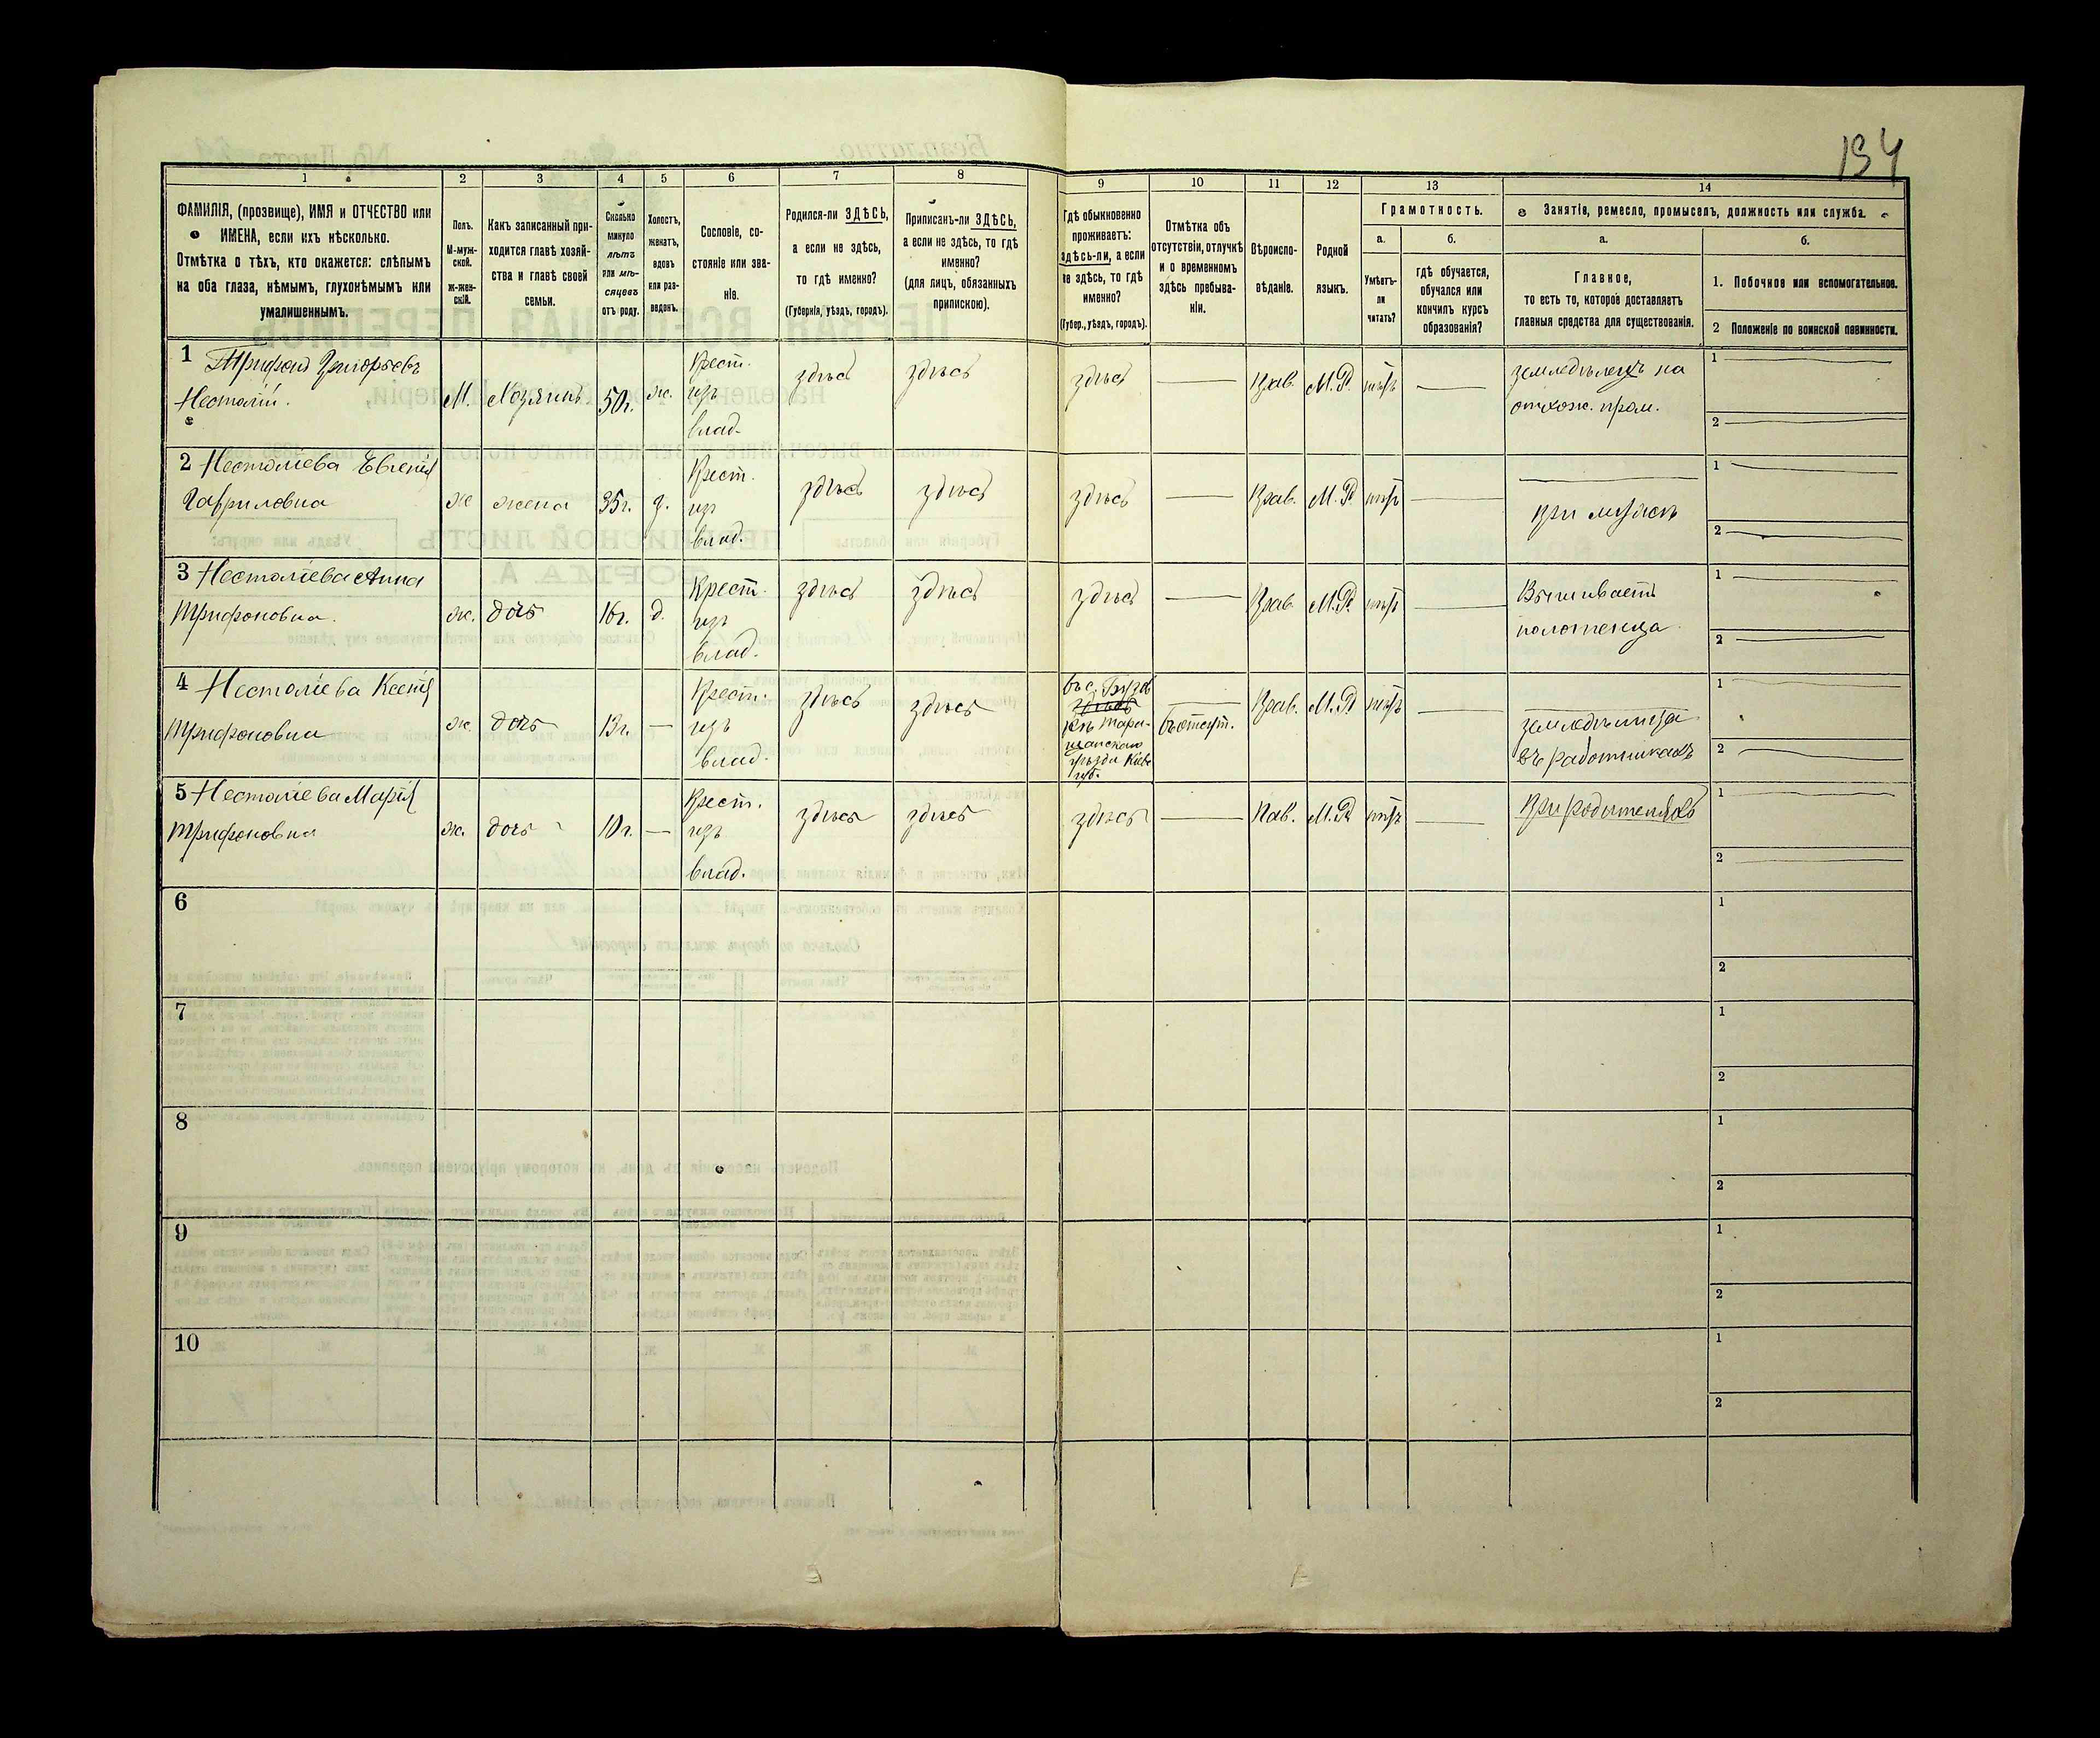 134
1 2 3 4 5 6 7 8 9 10 11 12 13 14
ФАМИЛІЯ, (прозвище), ИМЯ и ОТЧЕСТВО или
ИМЕНА, если ихъ нѣсколько.
Отмѣтка о тѣхъ, кто окажется: слѣпымъ
на оба глаза, нѣмымъ, глухонѣмымъ или
умалишеннымъ.
Полъ.
М-муж-
ской.
Ж-жен-
скій.
Какъ записанный при-
ходится главѣ хозяй-
ства и главѣ своей
семьи.
Сколько
минуло
лѣтъ
или мѣ-
сяцевъ
отъ роду.
Холостъ,
женатъ,
вдовъ
или раз-
веденъ.
Сословіе, со-
стояніе или зва-
ніе.
Родился-ли ЗДѢСЬ,
а если не здѣсь,
то гдѣ именно?
(Губернія, уѣздъ, городъ).
Приписанъ-ли ЗДѢСЬ,
а если не здѣсь, то гдѣ
именно?
(для лицъ, обязанныхъ
припискою).
Гдѣ обыкновенно
проживаетъ:
здѣсь-ли, а если
не здѣсь, то гдѣ
именно?
(Губер., уѣздъ, городъ).
Отмѣтка объ
отсутствіи, отлучкѣ
и о временномъ
здѣсь пребыва-
ніи.
Вѣроиспо-
вѣданіе.
Родной
языкъ.
Грамотность.
а.
Умѣетъ-
ли
читать?
б.
гдѣ обучается,
обучался или
кончилъ курсъ
образованія?
Занятіе, ремесло, промыселъ, должность или служба.
а.
Главное,
то есть то, которое доставляетъ
главныя средства для существованія.
б.
1. Побочное или вспомогательное.
2 Положеніе по воинской повинности.
1 Трифонъ Григорьевъ
Несталій.
М. Хозяинъ 50 г. ж.
Крест.
изъ
влад.
здѣсь здѣсь здѣсь Прав. М.Р. нѣтъ
земледѣлецъ на
отхож. пром.
1
2
2 Несталіева Евгенія
Гавриловна
ж жена 35 г. з.
Крест.
изъ
влад.
здѣсь здѣсь здѣсь Прав. М.Р. нѣтъ
при мужѣ
1
2
3 Несталіева Анна
Трифоновна.
ж. дочь 16 г. д.
Крест.
изъ
влад.
здѣсь здѣсь здѣсь Прав. М.Р. нѣтъ
Вышиваетъ
полотенца
1
2
4 Несталіева Ксенія
Трифоновна
ж. дочь 13 г.
Крест.
изъ
влад.
здѣсь здѣсь
въ с.
здѣсь
Тара-
щанскаго
уѣзда Кіев
губ.
въ отсут. Прав. М.Р. нѣтъ
земледѣлица
въ работникахъ
1
2
5 Несталіева Марія
Трифоновна
ж. дочь 10 г.
Крест.
изъ
влад.
здѣсь здѣсь здѣсь Пав. М.Р. нѣтъ
При родителяхъ
1
2
6
1
2
7
1
2
8
1
2
9
1
2
10
1
2